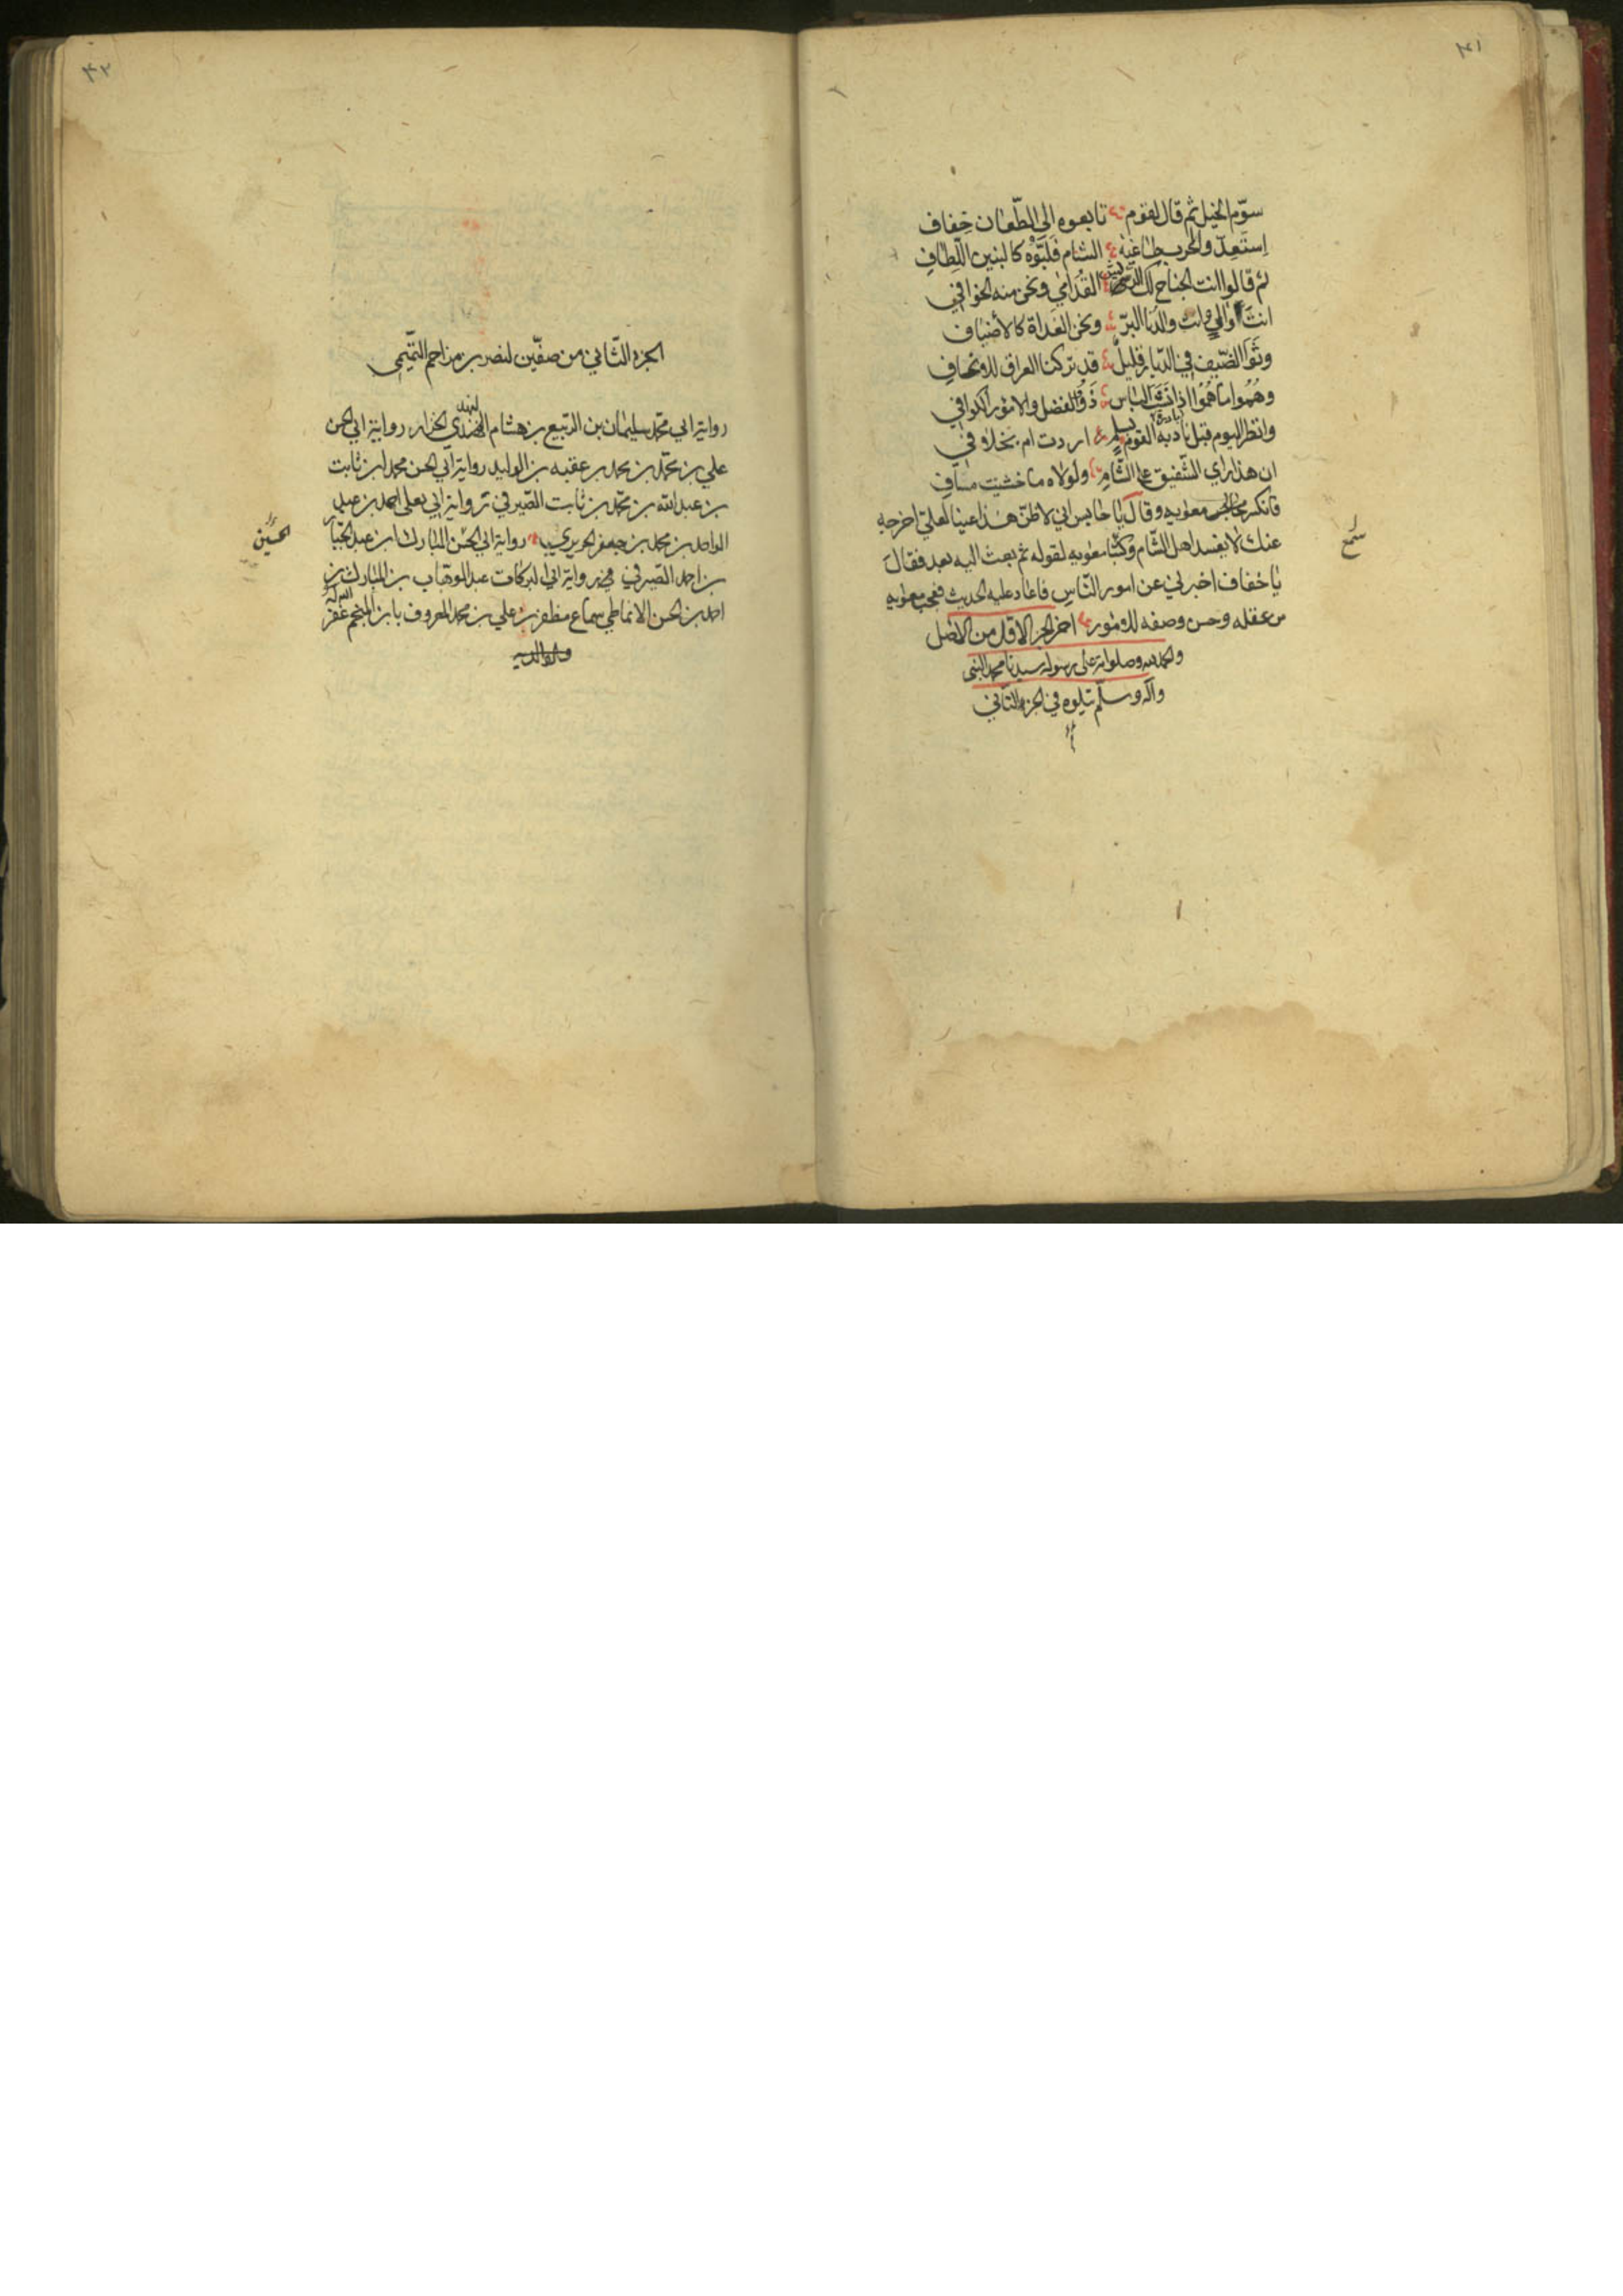 ٣١
سوّم الخيل ثم قال لقوم تابعوه الى الطّعان خفاف
استعدّ والحرب طاغية الشام فلبّوه كالبنين اللطاف
ثم قالوا انت الجناح لك الريش القدامي ونحن منه الخوافي
انت وال وانت والدنا البرّ ونحن الغداة كالأضياف
وقرا الضّيف في الدّيار قليل قد تركنا العراق للاتحاف
وهموا ما هموا اذا نشب الباس ذوو الفضل والامور الكوافي
وانظر اليوم قبل بادرة القوم بسلم اردت ام بخلاف
ان هذا راي الشّفيق على الشّام ولولاه ما خشيت مناف
فانكر معاوية وقال يا حابس اني لاظنّ هذا عينا لعلي اخرجه
سمع
عنك لا يفسد اهل الشّام وكنّا معوية لقوله ثم بعث اليه بعد فقال
يا خفاف اخبرني عن امور النّاس فاعاد عليه الحديث فعجب معوية
من عقله وحسن وصفه للامور اخر الجزء الاول من الاصل
والحمد لله وصلواته على رسوله سيدنا محمد النبي
وآله وسلّم يتلوه في الجزء الثاني
٣٢
الجزء الثّاني من صفّين لنصر بن مزاحم التّميمي
رواية ابي محمّد سليمان بن الرّبيع بن هشام النهدي الخزاز رواية ابي الحسن
علي بن محمّد بن محمد بن عقبه بن الوليد رواية ابي الحسن محمد ابن ثابت
بن عبد الله بن محمّد بن ثابت الصّيرفي رواية ابي يعلى احمد بن عبد
الواحد بن محمد بن جعفر الحريري رواية ابي الحسن المبارك ابن عبد الجبّار
الحسين
بن احمد الصّيرفي رواية ابي البركات عبد الوهّاب بن المبارك بن
احمد بن الحسن الانماطي سماع مظفر بن علي بن محمد المعروف بابن المنجم غفر الله له
ولوالديه